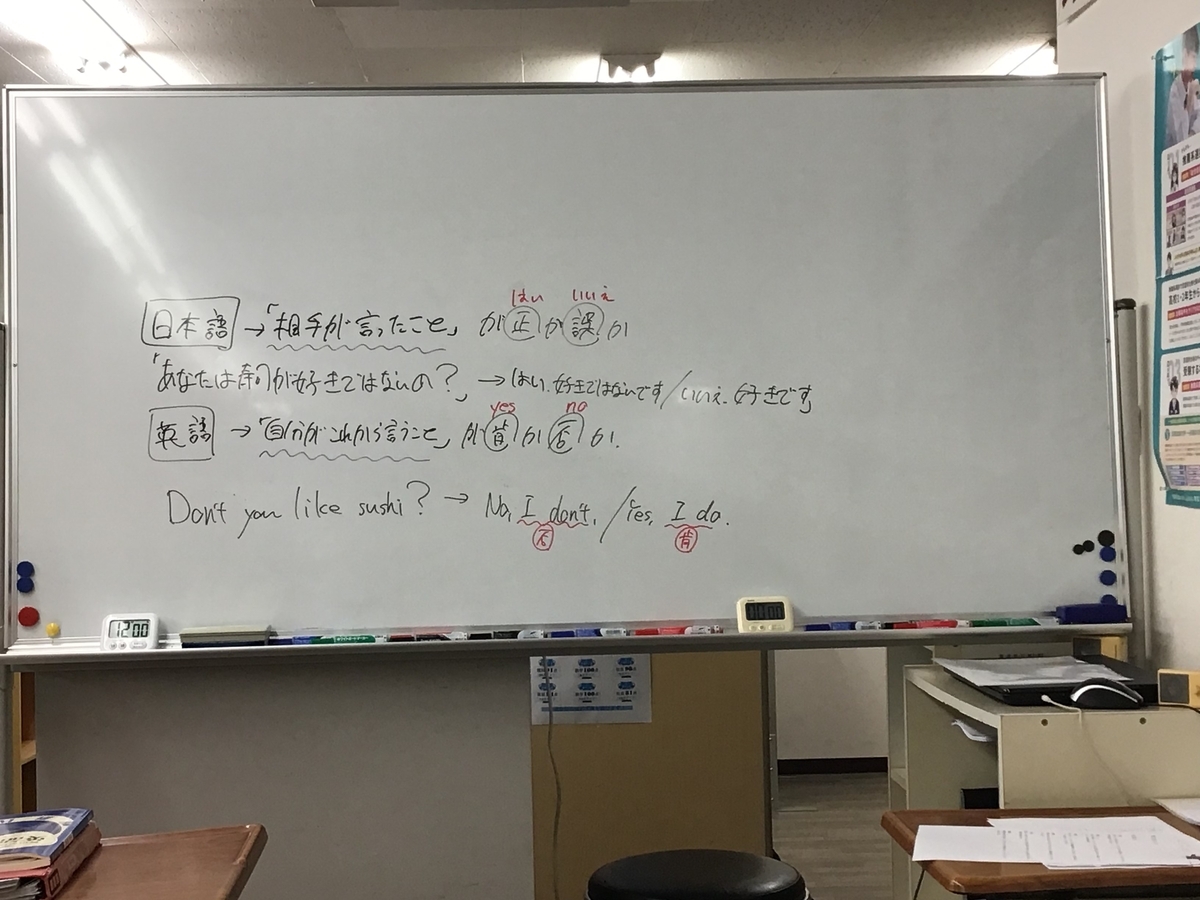 はい いいえ
日本語 →「相手が言ったこと」が正か誤か
「あなたは寿司が好きではないの?」→はい、好きではないです/いいえ、好きです」
yes no
英語 →「自分がこれから言うこと」が肯か否か.
Don't you like sushi? → No, I don't. / Yes, I do.
否 肯
12:00
00:00